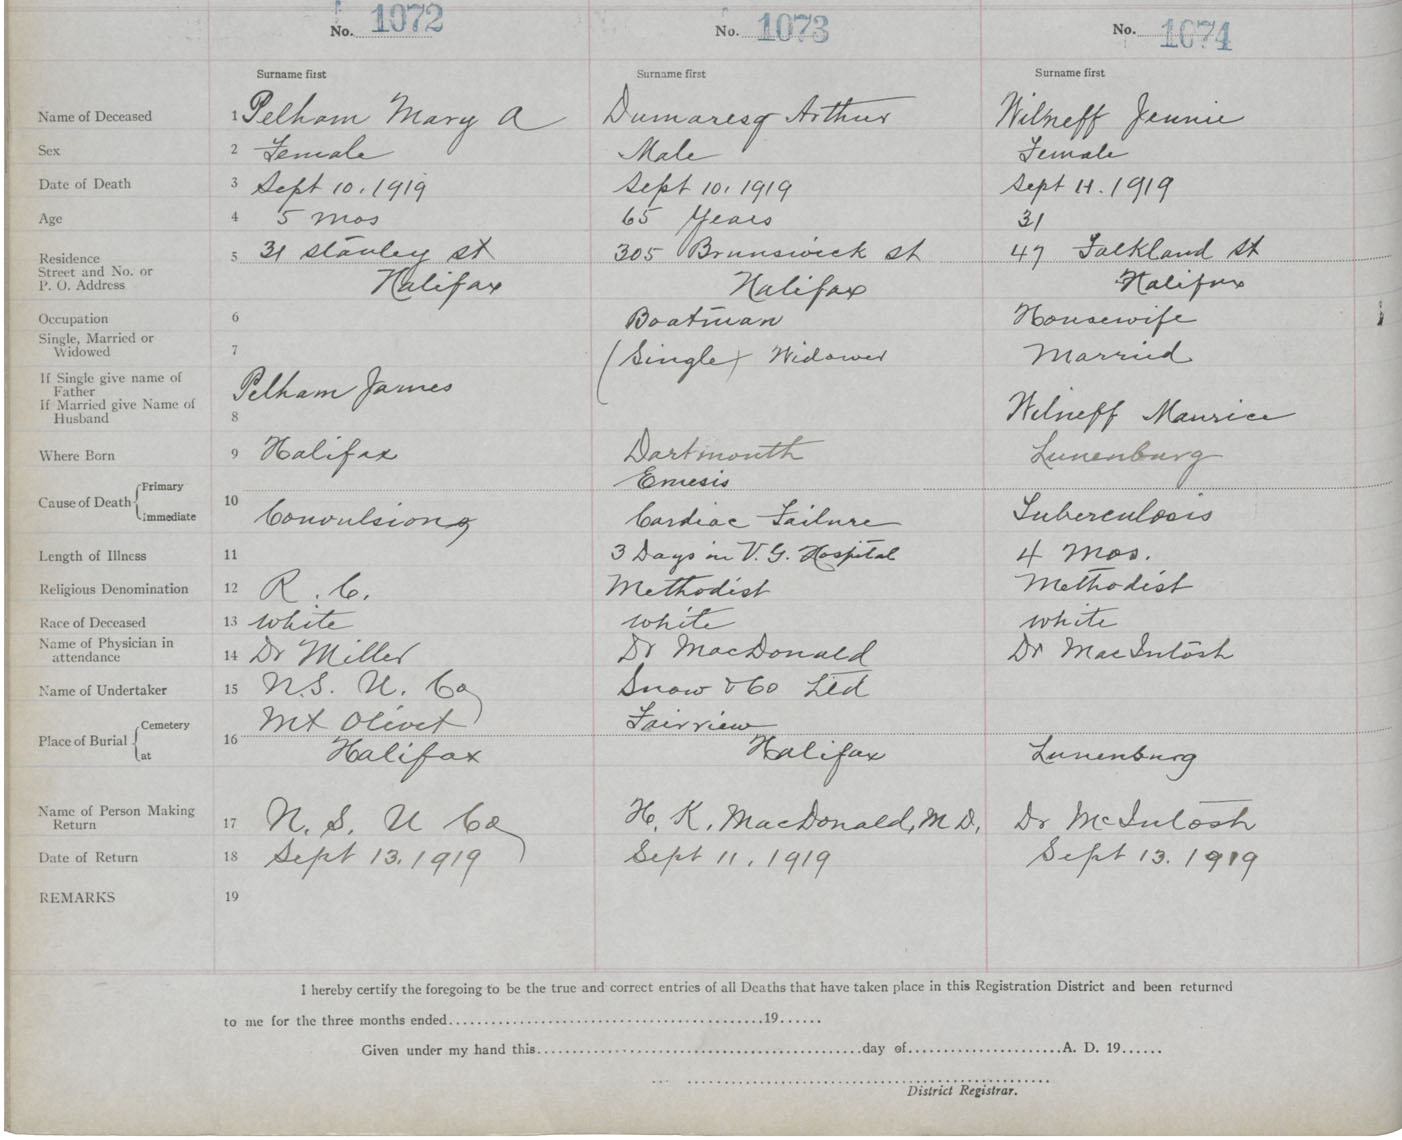 No. 1072 No. 1073 No. 1074
Surname first Surname first Surname first
Name of Deceased 1 Pelham Mary A Dumaresq Arthur Wilneff Jennie
Sex 2 Female Male Female
Date of Death 3 Sept 10. 1919 Sept 10. 1919 Sept 11. 1919
Age 4 5 mos 65 Years 31
Residence 5 31 Stanley St 305 Brunswick St 47 Falkland St
Street and No. or
P. O. Address Halifax Halifax Halifax
Occupation 6 Boatman Housewife
Single, Married or
Widowed 7 (Single) Widower Married
If Single give name of
Father Pelham James
If Married give Name of
Husband 8 Wilneff Maurice
Where Born 9 Halifax Dartmouth Lunenburg
Cause of Death 10
Primary Emesis
Immediate Convulsions Cardiac Failure Tuberculosis
Length of Illness 11 3 Days in V. G. Hospital 4 Mos.
Religious Denomination 12 R. C. Methodist Methodist
Race of Deceased 13 White White White
Name of Physician in
attendance 14 Dr Miller Dr MacDonald Dr MacIntosh
Name of Undertaker 15 N.S. U. Co Snow & Co Ltd
Place of Burial 16
Cemetery Mt Olivet Fairview
at Halifax Halifax Lunenburg
Name of Person Making
Return 17 N. S. U Co H. K. MacDonald, M D. Dr McIntosh
Date of Return 18 Sept 13. 1919 Sept 11. 1919 Sept 13. 1919
REMARKS 19
I hereby certify the foregoing to be the true and correct entries of all Deaths that have taken place in this Registration District and been returned
to me for the three months ended............................................19......
Given under my hand this..............................................day of......................A. D. 19......
District Registrar.